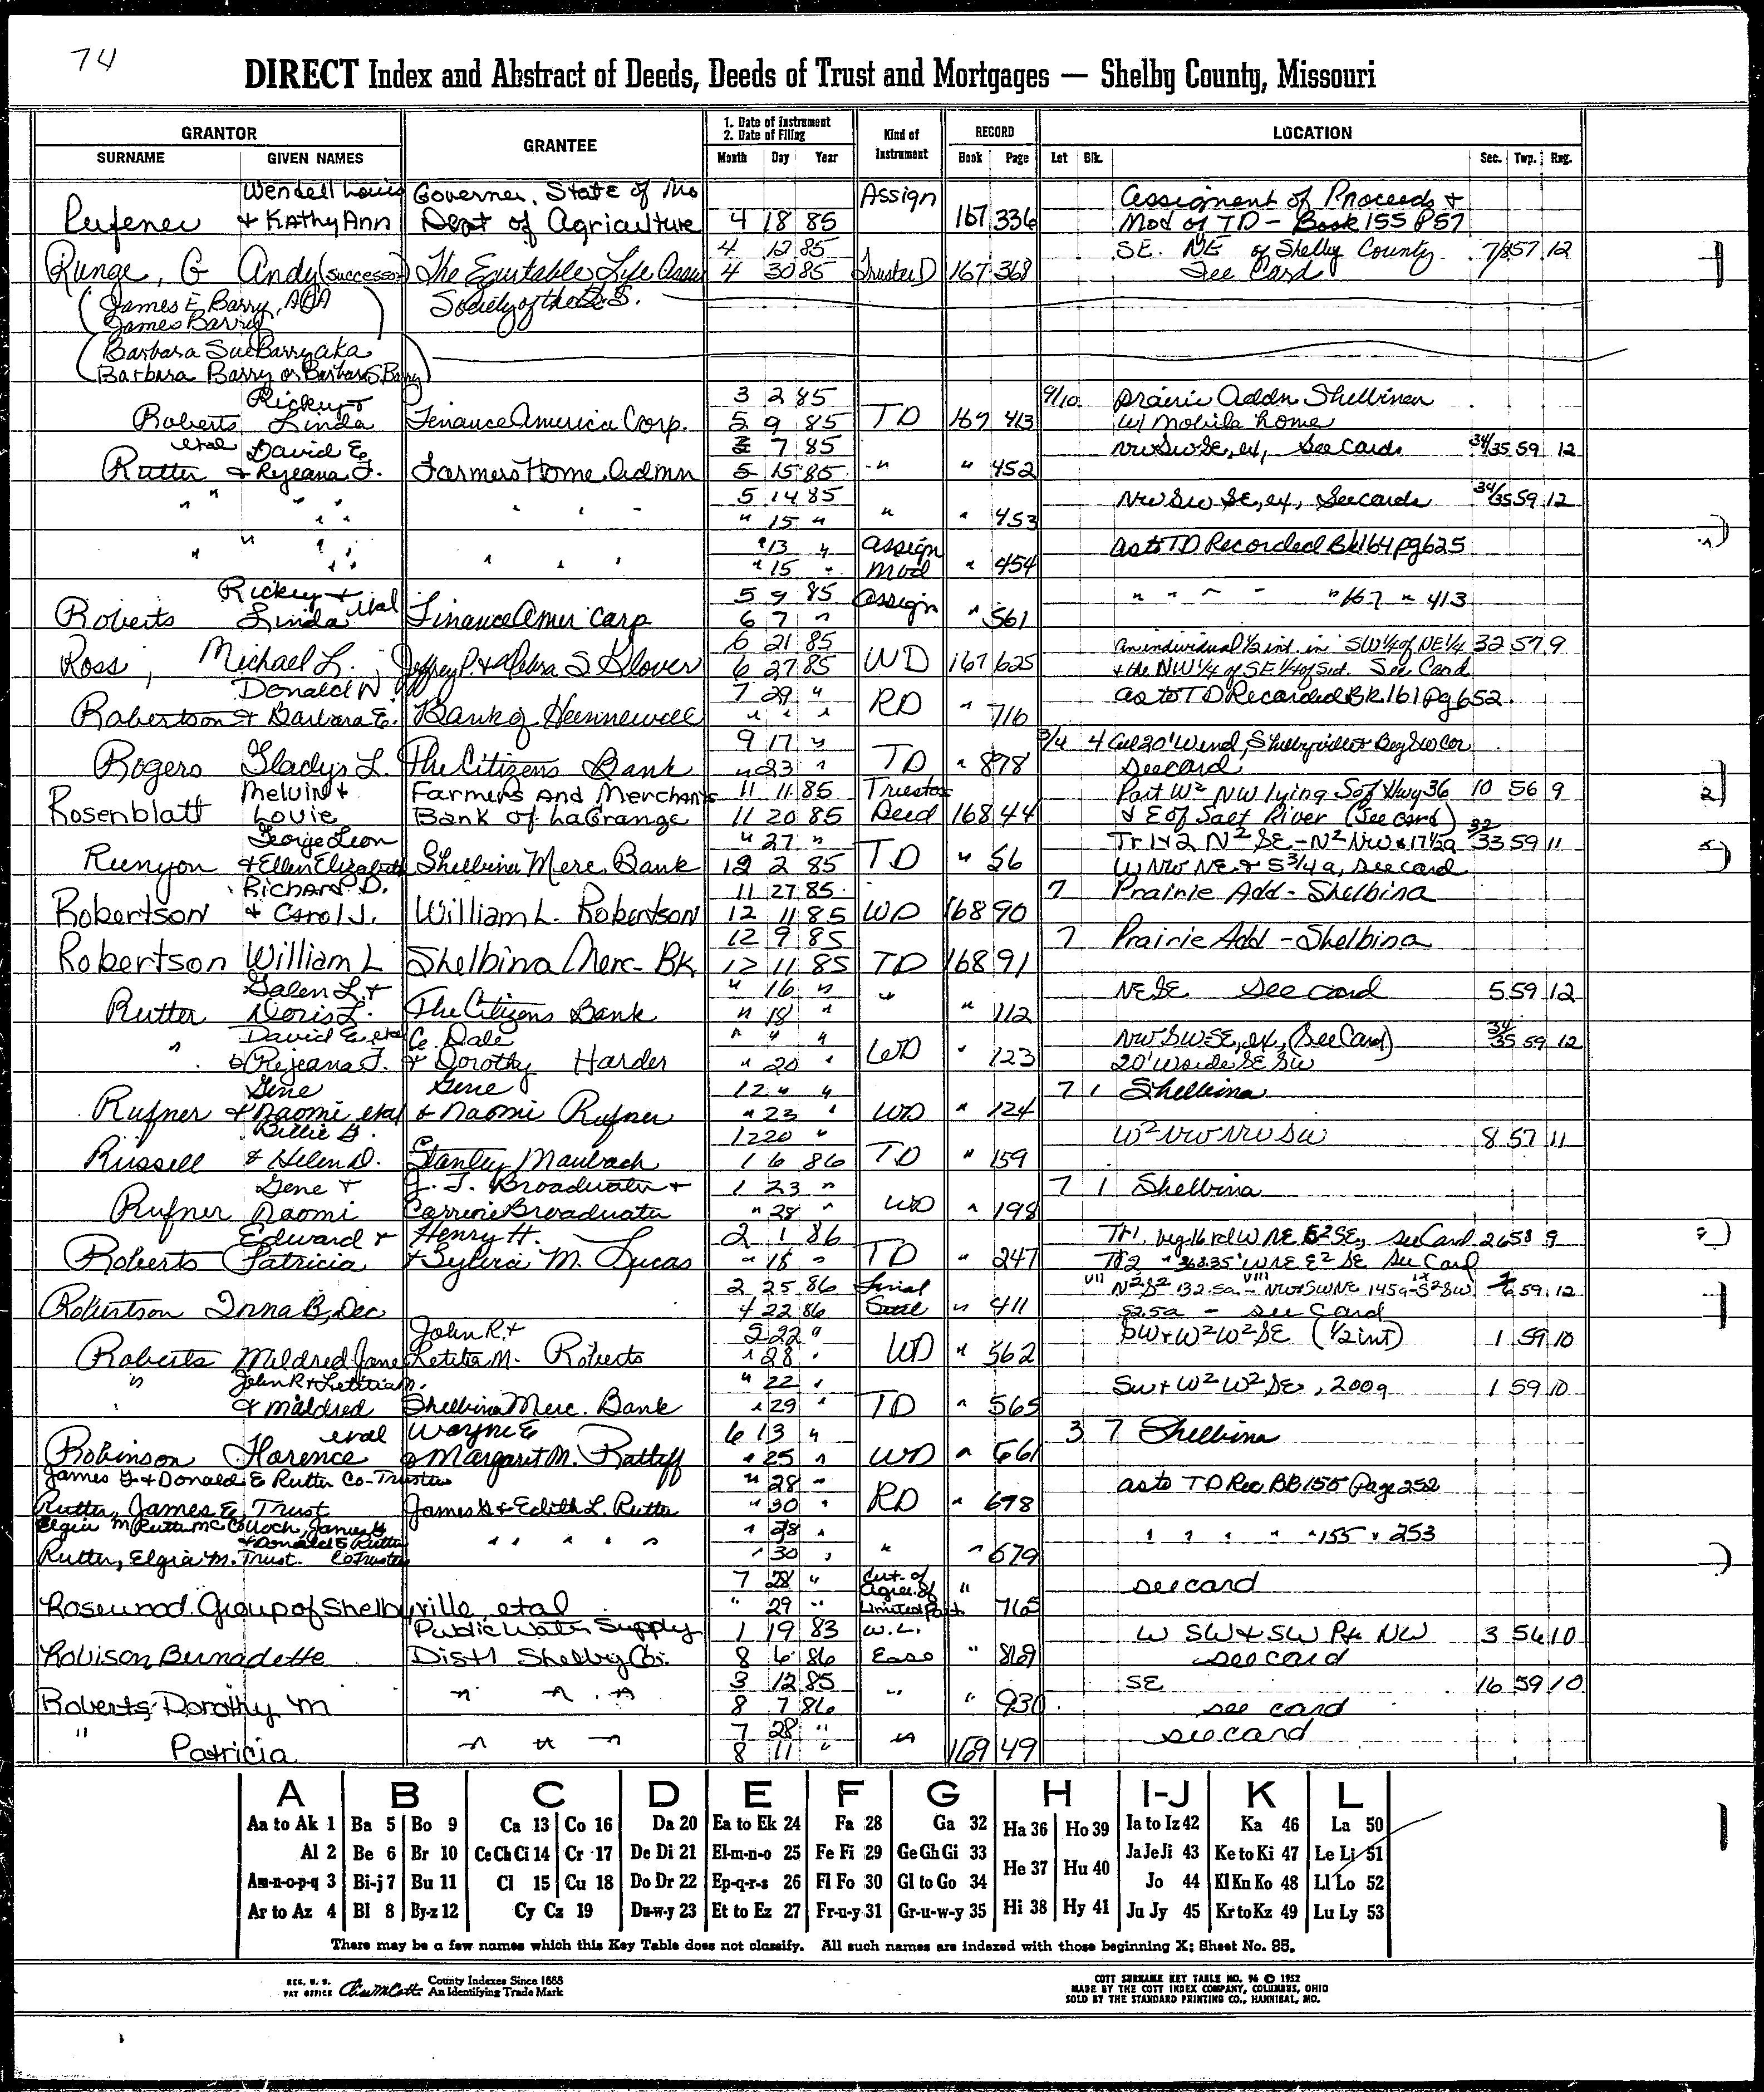 74
DIRECT Index and Abstract of Deeds, Deeds of Trust and Mortgages — Shelby County, Missouri
GRANTOR GRANTEE 1. Date of Instrument 2. Date of Filing Kind of Instrument RECORD LOCATION
SURNAME GIVEN NAMES Month Day Year Book Page Lot Blk. Sec. Twp. Rng.
Wendell Louis Governer, State of Mo Assign Assignment of Proceeds +
Rufener + Kathy Ann Dept of Agriculture 4 18 85 167 336 Mod of TD - Book 155 P57
4 12 85 SE. NE of Shelby County 7/8 57 12
Runge, G Andy (successor) The Equitable Life Assu 4 30 85 Trustee D 167 368 See Card
(James E Barry, AKA Society of the U.S.
James Barry)
(Barbara Sue Barry aka
Barbara Barry or Barbara S. Barry)
Ricky + 3 2 85 9/10 Prairie Addn. Shelbina
Roberts Linda Finance America Corp. 5 9 85 TD 167 413 W/ Mobile home
etal David E. 7 85 NW SW SE, ex, See Cards 34/35 59 12
Rutter + Rejeana J. Farmers Home Admn 5 15 85 " " 452
" " " " " " 5 14 85 NW SW SE, ex, See cards 34/35 59 12
" 15 " " " 453
" " " " " " " 13 " Assign As to TD Recorded Bk 164 pg 625
" 15 " Mod " 454
Rickey + 5 9 85 Assign " " " " " 167 " 413
Roberts Linda etal Finance Amer Corp 6 7 " " 561
6 21 85 an individual 1/2 int. in SW 1/4 of NE 1/4 32 57 9
Ross, Michael L. Jeffrey P. + Debra S Glover 6 27 85 WD 167 625 + the NW 1/4 of SE 1/4 of Sec. See Card
Donald W. 7 29 " RD As to TD Recorded Bk 161 pg 652
Robertson + Barbara E. Bank of Hunnewell " " " " 716
9 17 " 3/4 4 Cel 20' W end, Shelbyville + Beg SW Cor
Rogers Gladys L. The Citizens Bank " 23 " TD " 878 See card
Melvin + Farmers And Merchants 11 11 85 Trustees Part W² NW lying S of Hwy 36 10 56 9
Rosenblatt Louie Bank of LaGrange 11 20 85 Deed 168 44 + E of Salt River (See card)
George Leon " 27 " Tr 1+2 N² SE - N² NW + 17 1/2 a 32/33 59 11
Runyon + Ellen Elizabeth Shelbina Merc. Bank 12 2 85 TD " 56 W NW NE + 5 3/4 a, see card
Richard D. 11 27 85 7 Prairie Add - Shelbina
Robertson + Carol J. William L. Robertson 12 11 85 WD 168 90
12 9 85 7 Prairie Add - Shelbina
Robertson William L Shelbina Merc- Bk 12 11 85 TD 168 91
Galen L. + " 16 " " NE SE See card 5 59 12
Rutter Doris L. The Citizens Bank " 18 " " 112
" David E. etal C. Dale " " " NW SW SE, ex, (See Card) 34/35 59 12
+ Rejeana J. + Dorothy Harder " 20 " WD " 123 20' W side SE SW
Gene Gene 12 " " 7 1 Shelbina
Rufner + Naomi etal + Naomi Rufner " 23 " WD " 124
Billie G. 12 20 " W² NW NW SW 8 57 11
Russell + Helen D. Stanley Maubach 1 6 86 TD " 159
Gene + J. T. Broaduater + 1 23 " 7 1 Shelbina
Rufner Naomi Carrine Broaduater " 28 " WD " 198
Edward + Henry H. 2 1 86 Tr 1, beg 16 rd W NE E² SE, See Card 26 58 9
Roberts Patricia + Sylvia M. Lucas " 18 " TD " 247 Tr 2 " 368.35' W NE E² SE See Card
2 25 86 Final VII N² S² 132.5a - VIII NW + SW NE 145a - IX S² SW 59 12
Robertson Inna B, Dec 4 22 86 Settl " 411 52.5a - See Card
John R. + 5 22 " SW + W² W² SE (1/2 int) 1 59 10
Roberts Mildred Jane Letitia M. Roberts " 28 " WD " 562
" John R + Letitia M. " 22 " SW + W² W² SE, 200a 1 59 10
" + Mildred Shelbina Merc. Bank " 29 " TD " 565
etal Wayne E 6 13 " 3 7 Shelbina
Robinson Florence & Margaret M. Ratliff " 25 " WD " 661
James G. + Donald E Rutter Co-Trustee " 28 " As to TD Rec BB 155 Page 252
Rutter, James E, Trust James G + Edith L. Rutter " 30 " RD " 678
Elgia M Rutter McColloch, James G " 28 " " " " " " 155 " 253
+ Donald E Rutter " " " " "
Rutter, Elgia M. Trust. CoTrustee " 30 " " " 679
7 28 " Cert. of Agree. of " See card
Rosewood Group of Shelbyville, etal " 29 " Limited Part. 765
Public Water Supply 1 19 83 W.L. W SW + SW Pt NW 3 56 10
Robison Bernadette Dist 1 Shelby Co. 8 6 86 Ease " 869 see card
3 12 85 SE 16 59 10
Roberts, Dorothy M " " " 8 7 86 " " 930 see card
" 7 28 " see card
Patricia " " " 8 11 " " 169 49
A B C D E F G H I-J K L
Aa to Ak 1 Ba 5 Bo 9 Ca 13 Co 16 Da 20 Ea to Ek 24 Fa 28 Ga 32 Ha 36 Ho 39 Ia to Iz 42 Ka 46 La 50
Al 2 Be 6 Br 10 Ce Ch Ci 14 Cr 17 De Di 21 El-m-n-o 25 Fe Fi 29 Ge Gh Gi 33 He 37 Hu 40 Ja Je Ji 43 Ke to Ki 47 Le Li 51
Am-n-o-p-q 3 Bi-j 7 Bu 11 Cl 15 Cu 18 Do Dr 22 Ep-q-r-s 26 Fl Fo 30 Gl to Go 34 Jo 44 Kl Kn Ko 48 Ll Lo 52
Ar to Az 4 Bl 8 By-z 12 Cy Cz 19 Du-w-y 23 Et to Ez 27 Fr-u-y 31 Gr-u-w-y 35 Hi 38 Hy 41 Ju Jy 45 Kr to Kz 49 Lu Ly 53
There may be a few names which this Key Table does not classify. All such names are indexed with those beginning X; Sheet No. 95.
REG. U. S. PAT OFFICE County Indexes Since 1888 An Identifying Trade Mark
COTT SURNAME KEY TABLE NO. 96 © 1952
MADE BY THE COTT INDEX COMPANY, COLUMBUS, OHIO
SOLD BY THE STANDARD PRINTING CO., HANNIBAL, MO.